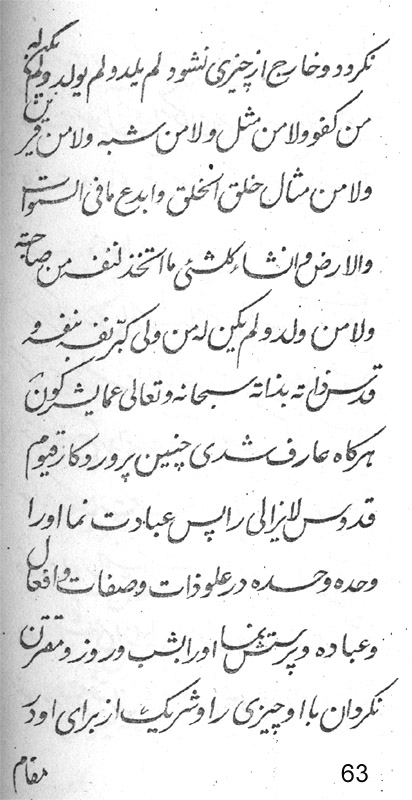 نکردد و خارج از چیزی نشود لم یلد و لم یولد و لم یکن له
من کفو و لا من مثل و لا من شبه و لا من قرین
و لا من مثال خلق الخلق و ابدع ما فی السموات
والارض و انشاء کلشئی ما اتخذ لنفسه من صاحبة
و لا من ولد و لم یکن له من ولی کبر نفسه بنفسه و
قدس ذاته بذاته سبحانه و تعالی عما یشرکون
هرکاه عارف شدی چنین پروردکار قیوم
قدوس لایزالی را پس عبادت نما او را
وحده وحده در علو ذات و صفات و افعال
و عباده و پرستش نما او را بشب و روز و مقترن
نکردان با او چیزی را و شریک از برای او در
مقام
63